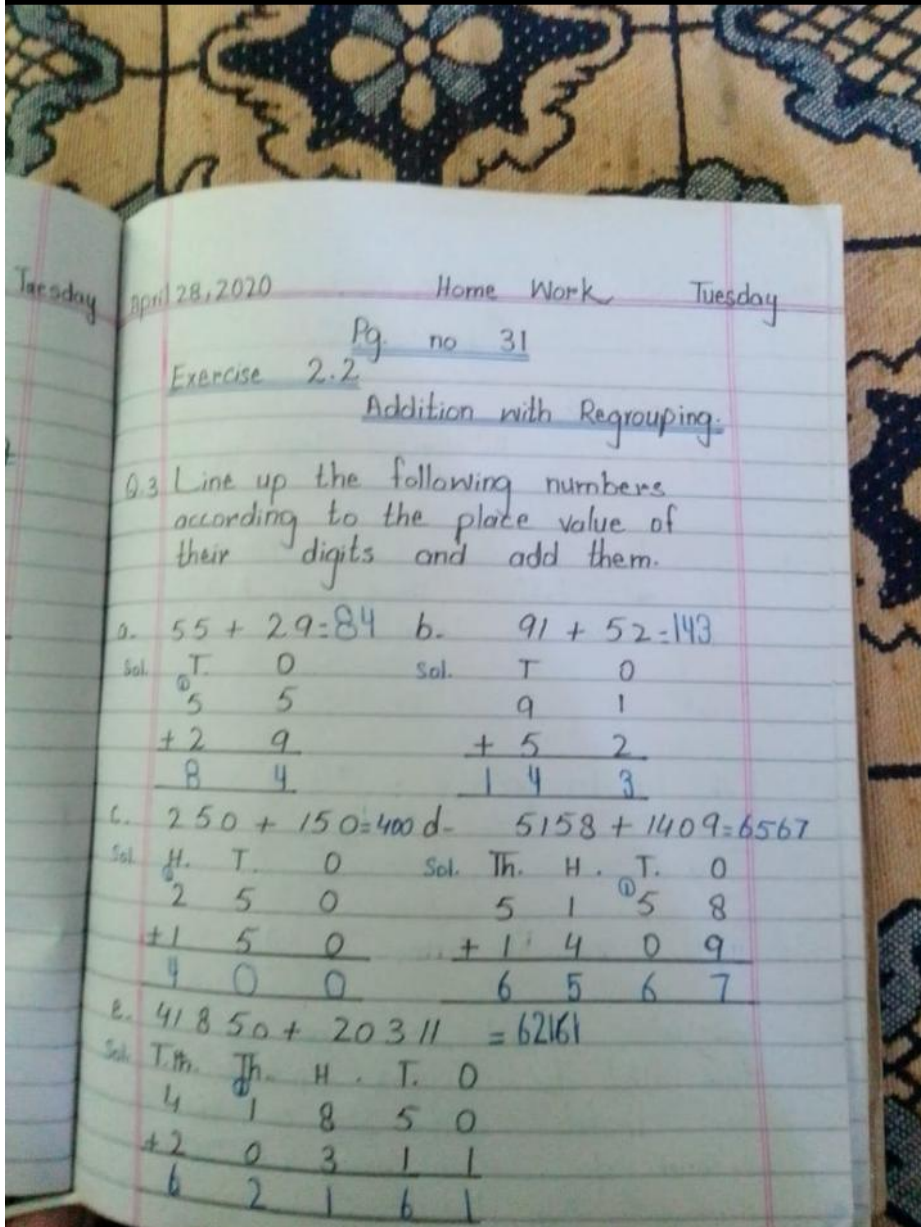 Tuesday
April 28, 2020 Home Work Tuesday
Pg. no 31
Exercise 2.2
Addition with Regrouping.
Q.3 Line up the following numbers
according to the place value of
their digits and add them.
a. 55 + 29=84 b. 91 + 52=143
Sol. T. O Sol. T O
① 
5 5 9 1
+ 2 9 + 5 2
8 4 1 4 3
c. 250 + 150=400 d- 5158 + 1409=6567
Sol. H. T. O Sol. Th. H. T. O
① ①
2 5 0 5 1 5 8
+1 5 0 + 1 4 0 9
4 0 0 6 5 6 7
e. 41850 + 20311 = 62161
Sol. T.th. Th. H. T. O
①
4 1 8 5 0
+2 0 3 1 1
6 2 1 6 1